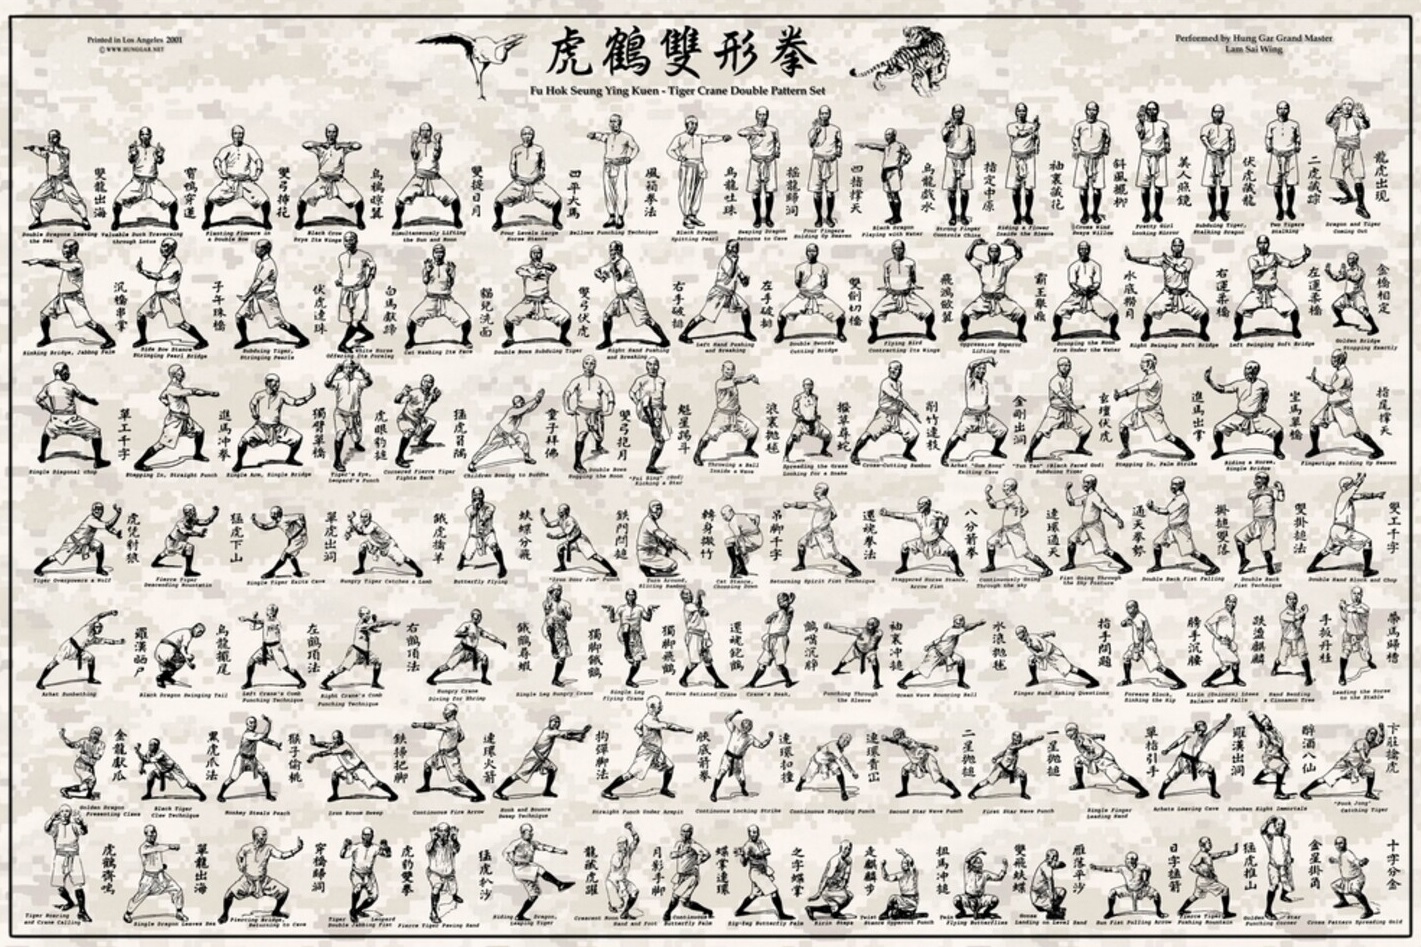 Printed in Los Angeles 2001
© WWW.HUNGGAR.NET
虎鶴雙形拳
Fu Hok Seung Ying Kuen - Tiger Crane Double Pattern Set
Performed by Hung Gar Grand Master
Lam Sai Wing
雙龍出海
Double Dragons Leaving
the Sea
Planting Flowers in
a Double Bow
雙弓插花
Black Crow
Simultaneously Lifting
the Sun and Moon
雙提日月
Four Levels Large
Horse Stance
四平大馬
Bellows Punching Technique
風箱拳法
Black Dragon
Spitting Pearl
烏龍吐珠
Swaying Dragon
Returns to Cave
搖龍歸洞
Four Fingers
Holding Up Heaven
四指撐天
Black Dragon
Playing with Water
烏龍戲水
Strong Finger
Controls China
指定中原
Riding a Flower
Inside the Sleeve
袖裏藏花
Cross Wind
Sways Willow
斜風擺柳
Pretty Girl
Looking Mirror
美人照鏡
Subduing Tiger,
Stalking Dragon
伏虎藏龍
Two Tigers
Stalking
二虎藏踪
Dragon and Tiger
Coming Out
龍虎出現
Sinking Bridge, Jabbing Palm
沉橋串掌
Side Bow Stance
Stringing Pearl Bridge
子午珠橋
Subduing Tiger,
Stringing Pearls
White Horse
白馬獻蹄
Cat Washing Its Face
貓兒洗面
Double Bows Subduing Tiger
雙弓伏虎
Right Hand Pushing
and Breaking
右手破排
Left Hand Pushing
and Breaking
左手破排
Double Swords
Cutting Bridge
雙劍切橋
Flying Bird
Contracting Its Wings
Oppressive Emperor
Lifting Urn
霸王舉鼎
Scooping the Moon
from Under the Water
水底撈月
Right Swinging Soft Bridge
右運柔橋
Left Swinging Soft Bridge
左運柔橋
Golden Bridge
Stopping Exactly
金橋相定
Single Diagonal Chop
單工千字
Stepping In, Straight Punch
進馬冲拳
Single Arm, Single Bridge
獨臂單橋
Tiger's Eye,
Leopard's Punch
虎眼豹搥
Cornered Fierce Tiger
Fights Back
猛虎負隅
Children Bowing to Buddha
童子拜佛
Double Bows
Hugging the Moon
雙弓抱月
"Fui Sing" (God)
Kicking a Star
魁星踢斗
Throwing a Ball
Inside a Wave
浪裏抛毬
Spreading the Grass
Looking for a Snake
撥草尋蛇
Cross-Cutting Bamboo
削竹連枝
Exiting Cave
金剛出洞
Subduing Tiger
玄壇伏虎
Stepping In, Palm Strike
進馬出掌
Riding a Horse,
Single Bridge
Fingertips Holding Up Heaven
指尾撐天
Tiger Overpowers a Wolf
Fierce Tiger
Descending Mountain
猛虎下山
Single Tiger Exits Cave
單虎出洞
Hungry Tiger Catches a Lamb
餓虎擒羊
Butterfly Flying
蚨蝶分飛
"Iron Door Jam" Punch
鉄門閂搥
Turn Around,
Slicing Bamboo
轉身撇竹
Cat Stance,
Chopping Down
吊脚千字
Returning Spirit Fist Technique
還魂拳法
Staggered Horse Stance,
Arrow Fist
八分箭拳
Continuously Going
Through the Sky
連環通天
Fist Going Through
the Sky Posture
通天拳勢
Double Back Fist Falling
掛搥雙落
Double Back
Fist Technique
雙掛搥法
Double Hand Block and Chop
雙工千字
Arhat Sunbathing
羅漢晒尸
Black Dragon Swinging Tail
烏龍擺尾
Left Crane's Comb
Punching Technique
左鶴頂法
Right Crane's Comb
Punching Technique
右鶴頂法
Hungry Crane
Diving for Shrimp
餓鶴尋蝦
Single Leg Hungry Crane
獨脚餓鶴
Single Leg
Flying Crane
獨脚飛鶴
Revive Satiated Crane
還魂飽鶴
Crane's Beak,
鶴嘴沉踭
Punching Through
the Sleeve
袖裏冲搥
Ocean Wave Bouncing Ball
水浪抛毬
Finger Hand Asking Questions
指手問題
Forearm Block,
Sinking the Hip
膀手沉腰
Kirin (Unicorn) Loses
Balance and Falls
跌盪麒麟
Hand Bending
a Cinnamon Tree
手扳丹桂
Leading the Horse
to the Stable
帶馬歸槽
Golden Dragon
Presenting Claws
金龍獻爪
Black Tiger
Claw Technique
黑虎爪法
Monkey Steals Peach
猴子偷桃
Iron Broom Sweep
鉄掃把脚
Continuous Fire Arrow
連環火箭
Hook and Bounce
Sweep Technique
拘彈脚法
Straight Punch Under Armpit
腋底箭拳
Continuous Locking Strike
連環扣撞
Continuous Stepping Punch
Second Star Wave Punch
二星抛搥
First Star Wave Punch
一星抛搥
Single Finger
Leading Hand
單指引手
Arhats Leaving Cave
羅漢出洞
Drunken Eight Immortals
醉酒八仙
Catching Tiger
卞莊擒虎
Tiger Roaring
and Crane Calling
虎鶴齊鳴
Single Dragon Leaves Sea
單龍出海
Piercing Bridge,
Returning to Cave
穿橋歸洞
Tiger Leopard
Double Jabbing Fist
虎豹雙拳
Fierce Tiger Pawing Sand
猛虎扒沙
Riding Dragon,
Leaping Tiger
Crescent Moon
Hand and Foot
月影手脚
Continuous
Butterfly Palm
蝶掌連環
Zig-Zag Butterfly Palm
之字蝶掌
Kirin Steps
走麒麟步
Twist
Stance Uppercut Punch
扭馬冲搥
Twin
Flying Butterflies
雙飛蚨蝶
Goose
Landing on Level Sand
雁落平沙
Sun Fist Pulling Arrow
Fierce Tiger
Pushing Mountain
猛虎推山
Golden Star
Punching Corner
金星掛角
Cross Pattern Spreading Gold
十字分金